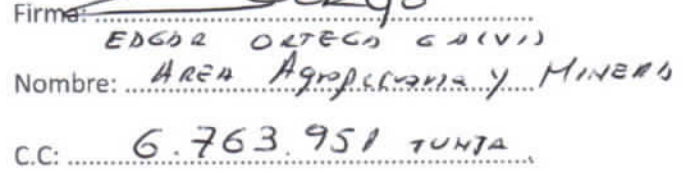 Firma:
EDGAR ORTEGA GALVIS
Nombre: AREA Agropecuaria y MINERA
C.C: 6.763.951 TUNJA